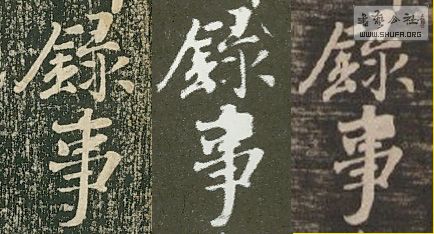 錄事
錄事
錄事
書藝公社
WWW.SHUFA.ORG